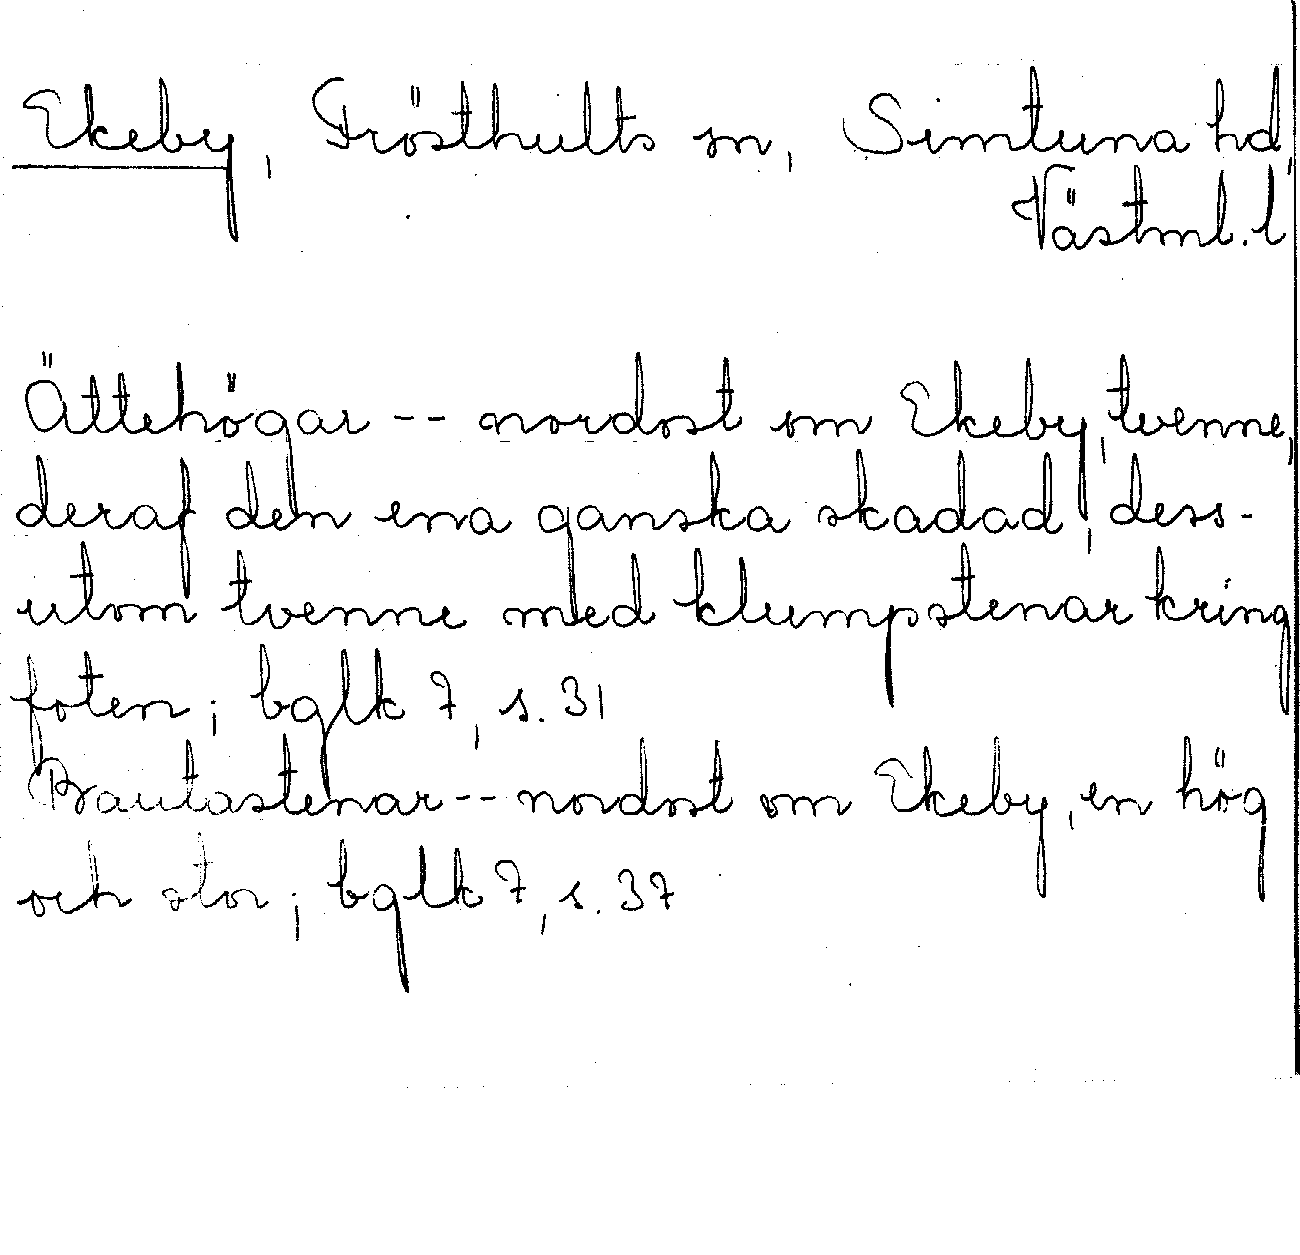 Ekeby, Frösthults sn, Simtuna hd,
Västml. l
Ättehögar -- nordost om Ekeby, tvenne,
deraf den ena ganska skadad, dess-
utom tvenne med klumpstenar kring
foten; bglk 7, s. 31
Bautastenar -- nordost om Ekeby, en hög
och stor; bglk 7, s. 37